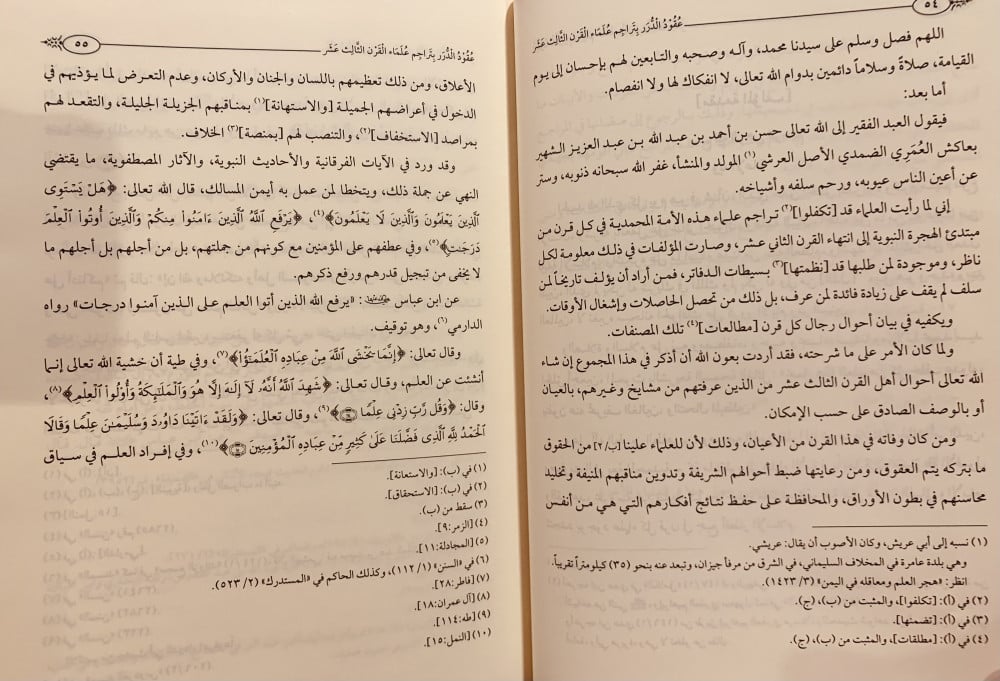 ٥٤
عُقُودُ الدُّرَرِ بِتَرَاجِمِ عُلَمَاءِ القَرْنِ الثَّالِثَ عَشَر
اللهم فصل وسلم على سيدنا محمد، وآله وصحبه والتابعين لهم بإحسان إلى يوم
القيامة، صلاةً وسلاماً دائمين بدوام الله تعالى، لا انفكاك لها ولا انفصام.
أما بعد:
فيقول العبد الفقير إلى الله تعالى حسن بن أحمد بن عبد الله بن عبد العزيز الشهير
بعاكش العُمَرِي الضمدي الأصل العرشي(١) المولد والمنشأ، غفر الله سبحانه ذنوبه، وستر
عن أعين الناس عيوبه، ورحم سلفه وأشياخه.
إني لما رأيت العلماء قد [تكفلوا](٢) تراجم علماء هذه الأمة المحمدية في كل قرن من
مبتدئ الهجرة النبوية إلى انتهاء القرن الثاني عشر، وصارت المؤلفات في ذلك معلومة لكل
ناظر، وموجودة لمن طلبها قد [نظمتها](٣) بسيطات الدفاتر، فمن أراد أن يؤلف تاريخاً لمن
سلف لم يقف على زيادة فائدة لمن عرف، بل ذلك من تحصل الحاصلات وإشغال الأوقات.
ويكفيه في بيان أحوال رجال كل قرن [مطالعات](٤) تلك المصنفات.
ولما كان الأمر على ما شرحته، فقد أردت بعون الله أن أذكر في هذا المجموع إن شاء
الله تعالى أحوال أهل القرن الثالث عشر من الذين عرفتهم من مشايخ وغيرهم، بالعيان
أو بالوصف الصادق على حسب الإمكان.
ومن كان وفاته في هذا القرن من الأعيان، وذلك لأن للعلماء علينا [ب/٢] من الحقوق
ما بتركه يتم العقوق، ومن رعايتها ضبط أحوالهم الشريفة وتدوين مناقبهم المنيفة وتخليد
محاسنهم في بطون الأوراق، والمحافظة على حفظ نتائج أفكارهم التي هي من أنفس
(١) نسبه إلى أبي عريش، وكان الأصوب أن يقال: عريشي.
وهي بلدة عامرة في المخلاف السليماني، في الشرق من مرفأ جيزان، وتبعد عنه بنحو (٣٥) كيلومتراً تقريباً.
انظر: «هجر العلم ومعاقله في اليمن» (٣/ ١٤٢٣).
(٢) في (أ): [تكلفوا]، والمثبت من (ب)، (ج).
(٣) في (أ): [تضمنها].
(٤) في (أ): [مطلقات]، والمثبت من (ب)، (ج).
عُقُودُ الدُّرَرِ بِتَرَاجِمِ عُلَمَاءِ القَرْنِ الثَّالِثَ عَشَر
٥٥
الأعلاق، ومن ذلك تعظيمهم باللسان والجنان والأركان، وعدم التعرض لما يؤذيهم في
الدخول في أعراضهم الجميلة [والاستهانة](١) بمناقبهم الجزيلة الجليلة، والتقعد لهم
بمراصد [الاستخفاف](٢)، والتنصب لهم [بمنصة](٣) الخلاف.
وقد ورد في الآيات الفرقانية والأحاديث النبوية، والآثار المصطفوية، ما يقتضي
النهي عن جملة ذلك، ويتخطا لمن عمل به أيمن المسالك، قال الله تعالى: ﴿هَلْ يَسْتَوِى
الَّذِينَ يَعْلَمُونَ وَالَّذِينَ لَا يَعْلَمُونَ﴾(٤)، ﴿يَرْفَعِ اللَّهُ الَّذِينَ ءَامَنُوا مِنكُمْ وَالَّذِينَ أُوتُوا الْعِلْمَ
دَرَجَٰتٍ﴾(٥)، وفي عطفهم على المؤمنين مع كونهم من جملتهم، بل من أجلهم بل أجلهم ما
لا يخفى من تبجيل قدرهم ورفع ذكرهم.
عن ابن عباس رضي الله عنهما: «يرفع الله الذين أتوا العلم على الذين آمنوا درجات» رواه
الدارمي(٦)، وهو توقيف.
وقال تعالى: ﴿إِنَّمَا يَخْشَى اللَّهَ مِنْ عِبَادِهِ الْعُلَمَٰٓؤُا﴾(٧)، وفي طية أن خشية الله تعالى إنما
أنشئت عن العلم، وقال تعالى: ﴿شَهِدَ اللَّهُ أَنَّهُ لَا إِلَٰهَ إِلَّا هُوَ وَالْمَلَٰٓئِكَةُ وَأُولُوا الْعِلْمِ﴾(٨)،
وقال: ﴿وَقُل رَّبِّ زِدْنِى عِلْمًا﴾(٩)، وقال تعالى: ﴿وَلَقَدْ ءَاتَيْنَا دَاوُۥدَ وَسُلَيْمَٰنَ عِلْمًا وَقَالَا
الْحَمْدُ لِلَّهِ الَّذِى فَضَّلَنَا عَلَىٰ كَثِيرٍ مِّنْ عِبَادِهِ الْمُؤْمِنِينَ﴾(١٠)، وفي إفراد العلم في سياق
(١) في (ب): [والاستعانة].
(٢) في (ب): [الاستحقاق].
(٣) سقط من (ب).
(٤) [الزمر:٩].
(٥) [المجادلة:١١].
(٦) في «السنن» (١/ ١١٢)، وكذلك الحاكم في «المستدرك» (٢/ ٥٢٣).
(٧) [فاطر:٢٨].
(٨) [آل عمران:١٨].
(٩) [طه:١١٤].
(١٠) [النمل:١٥].